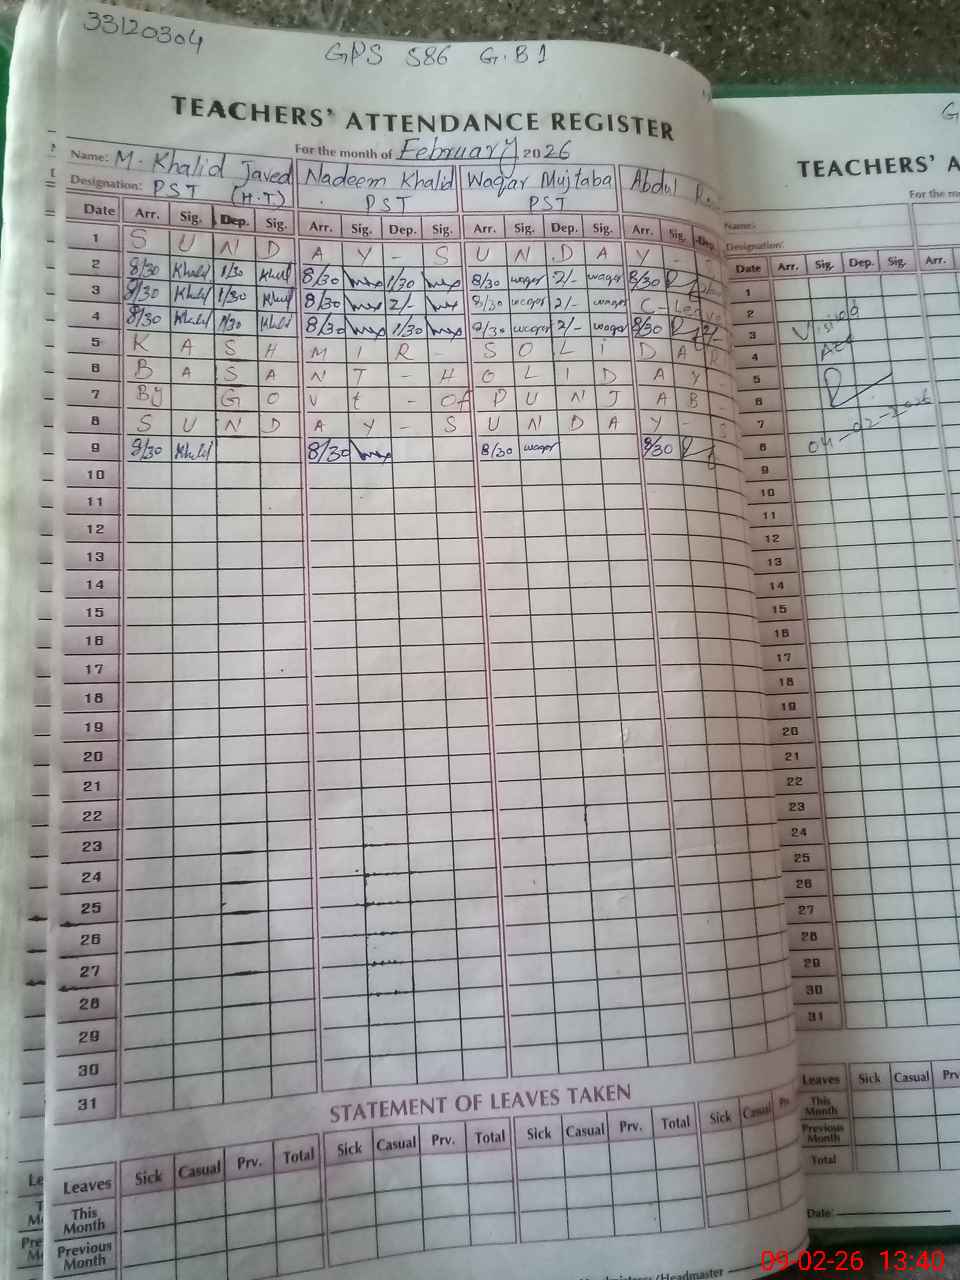 33120304
GPS 586 G.B 1
TEACHERS' ATTENDANCE REGISTER
For the month of February 2026
Name: M. Khalid Javed Nadeem Khalid Waqar Mujtaba Abdul
Designation: PST (H.T) PST PST
Date Arr. Sig. Dep. Sig. Arr. Sig. Dep. Sig. Arr. Sig. Dep. Sig. Arr. Sig. Dep.
1 S U N D A Y - S U N D A Y -
2 8/30 Khalid 1/30 Khalid 8/30 1/30 8/30 waqar 2/- waqar 8/30
3 8/30 Khalid 1/30 Khalid 8/30 2/- 8/30 waqar 2/- waqar C - Leave
4 8/30 Khalid 1/30 Khalid 8/30 1/30 8/30 waqar 2/- waqar 8/30 2/-
5 K A S H M I R - S O L I D A R
6 B A S A N T - H O L I D A Y -
7 By G O V t - Of P U N J A B -
8 S U N D A Y - S U N D A Y - S
9 8/30 Khalid 8/30 8/30 waqar 8/30
10
11
12
13
14
15
16
17
18
19
20
21
22
23
24
25
26
27
28
29
30
31
STATEMENT OF LEAVES TAKEN
Leaves Sick Casual Prv. Total Sick Casual Prv. Total Sick Casual Prv. Total Sick Casual Prv.
This Month
Previous Month
Headmaster
G
TEACHERS' A
For the mo
Name:
Designation:
Date Arr. Sig. Dep. Sig. Arr.
1
2
3
4
5
6
7
8
9
10
11
12
13
14
15
16
17
18
19
20
21
22
23
24
25
26
27
28
29
30
31
04-02-2026
Leaves Sick Casual Prv
This Month
Previous Month
Total
Date:
09-02-26 13:40